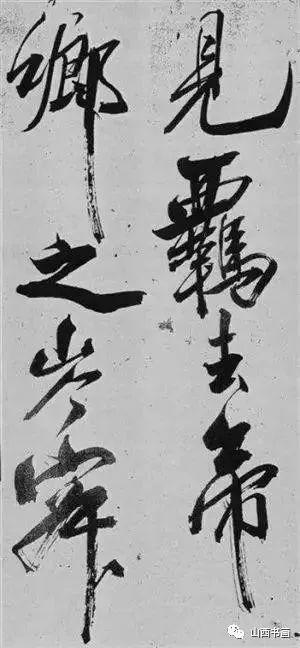 見羈去帝
鄉之岑寂
山西书画